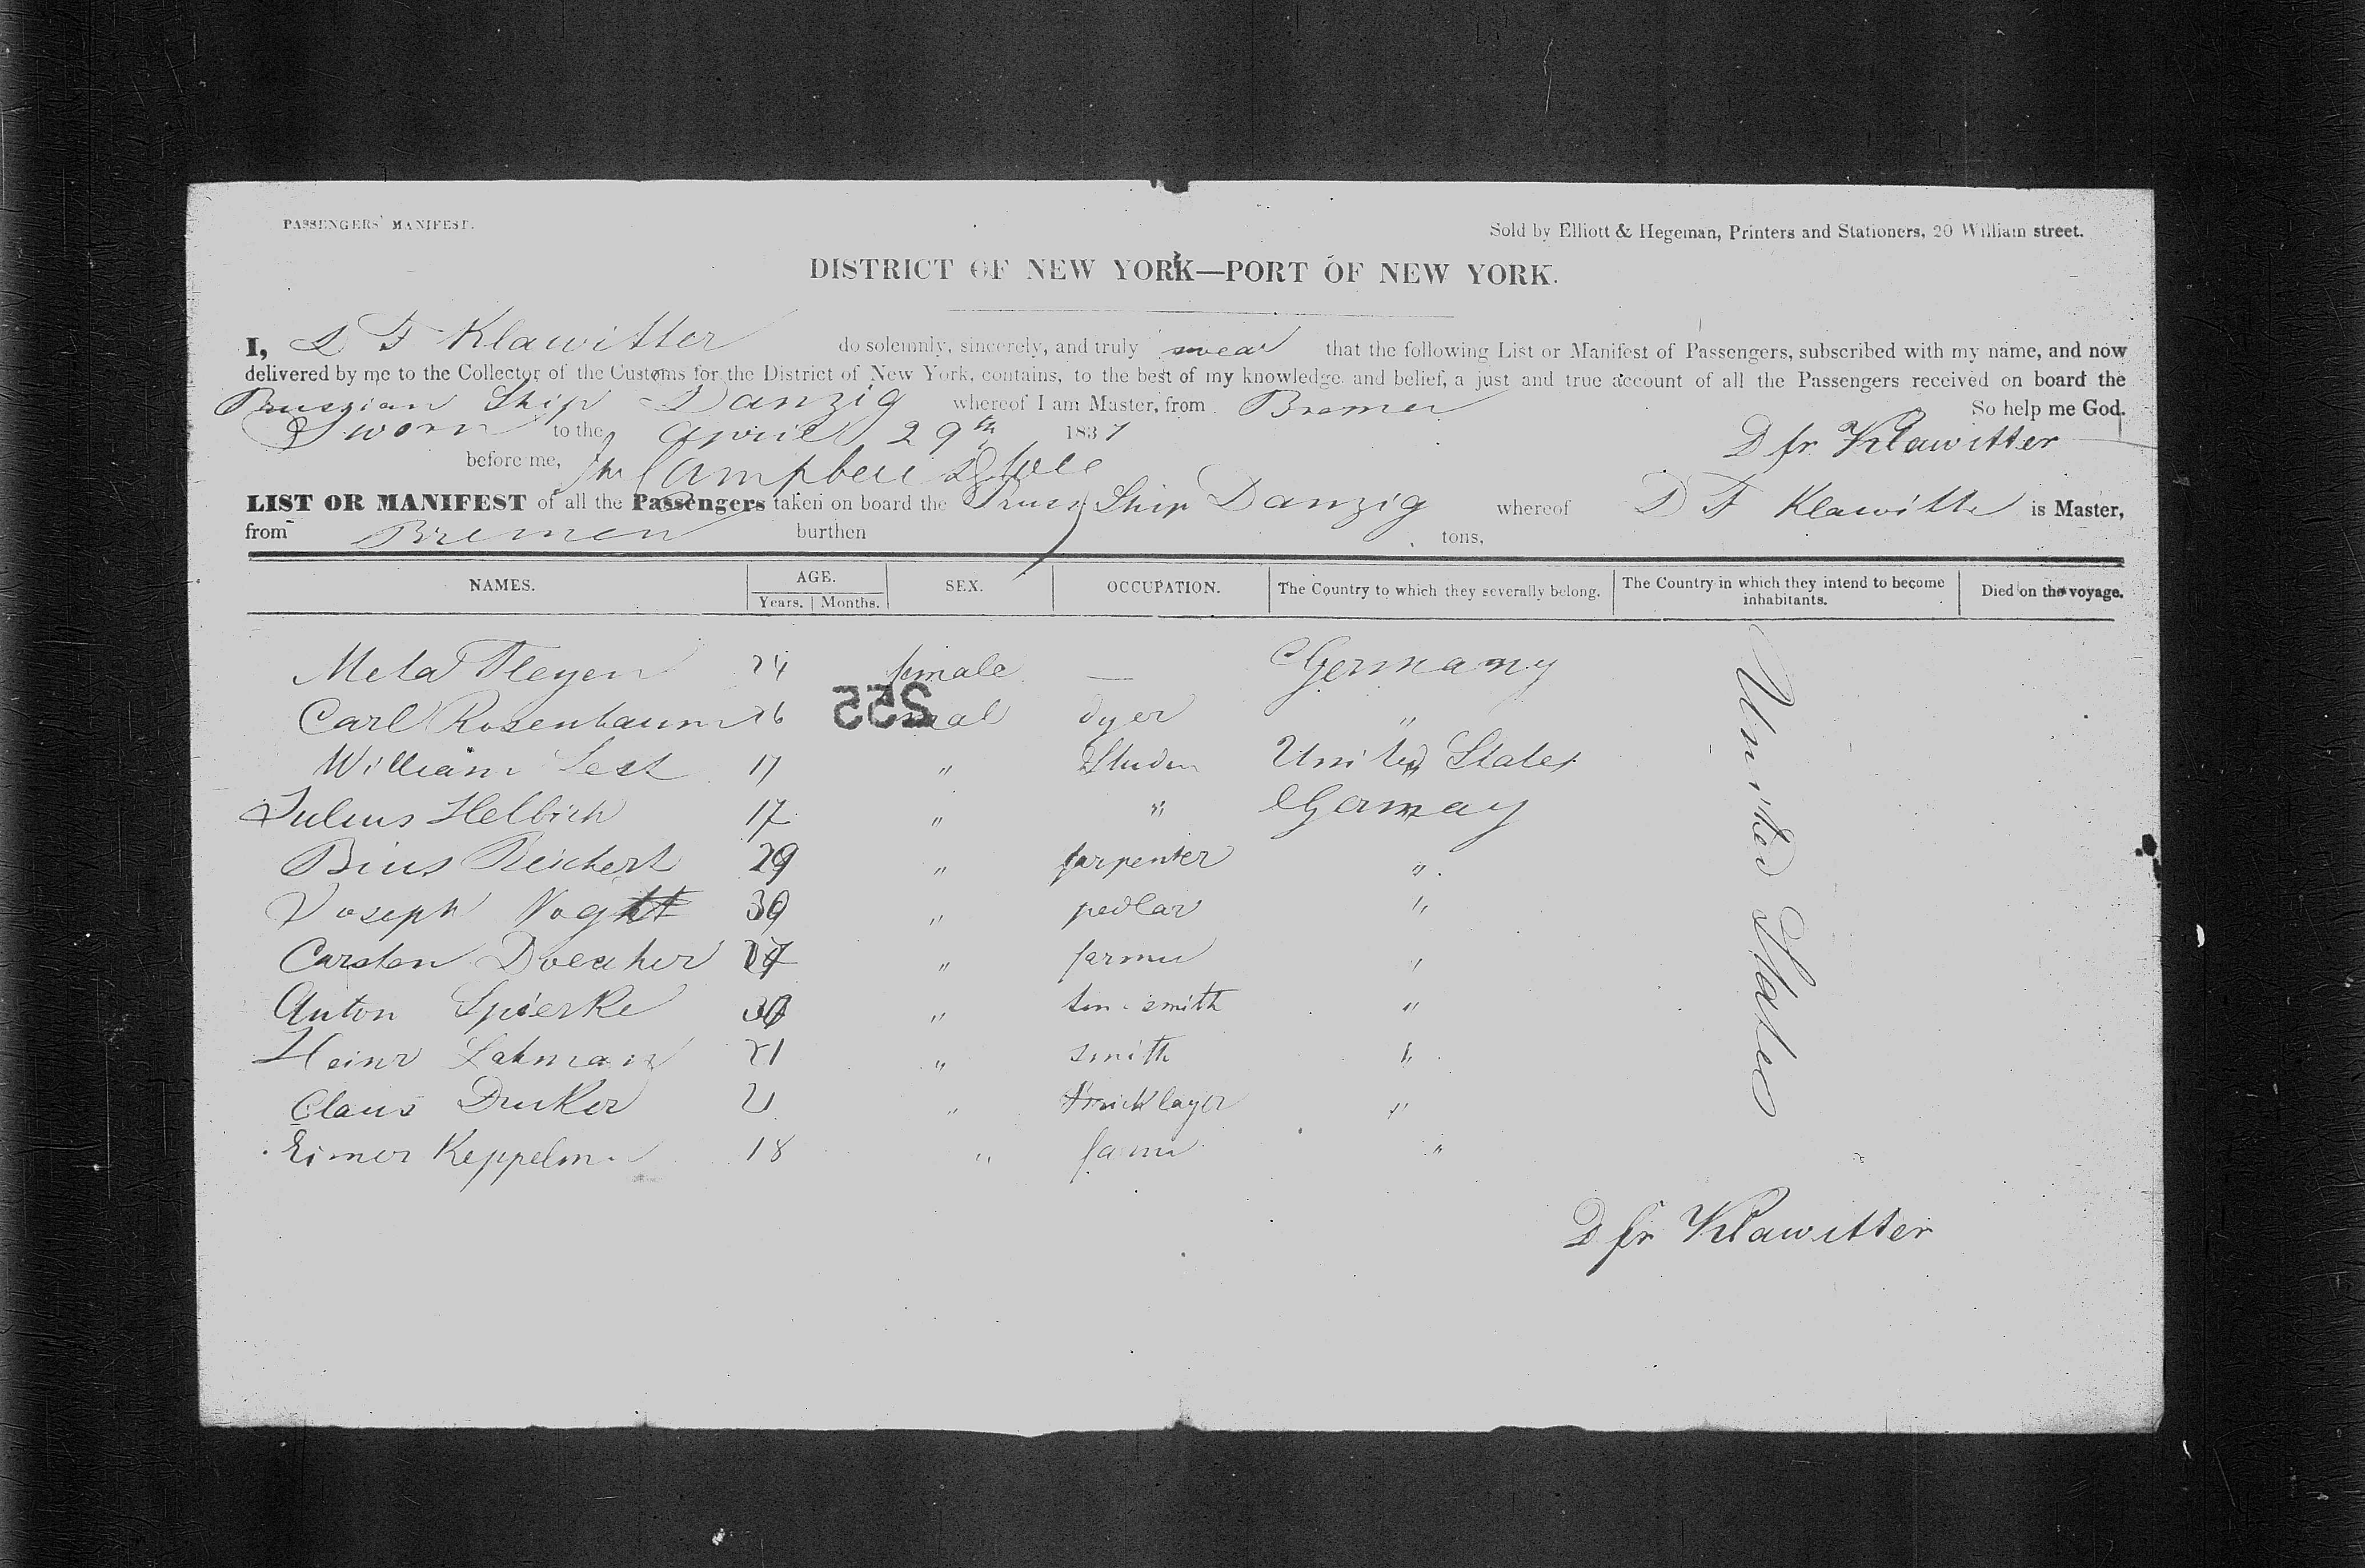 PASSENGERS' MANIFEST.
Sold by Elliott & Hegeman, Printers and Stationers, 20 William street.
DISTRICT OF NEW YORK—PORT OF NEW YORK.
I, D F Klawitter do solemnly, sincerely, and truly swear that the following List or Manifest of Passengers, subscribed with my name, and now
delivered by me to the Collector of the Customs for the District of New York, contains, to the best of my knowledge and belief, a just and true account of all the Passengers received on board the
Prussian Ship Danzig whereof I am Master, from Bremen So help me God.
Sworn to the April 29th 1837 D fr Klawitter
before me, Campbell
LIST OR MANIFEST of all the Passengers taken on board the Pruss Ship Danzig whereof D F Klawitter is Master,
from Bremen burthen tons,
NAMES. AGE. Years. Months. SEX. OCCUPATION. The Country to which they severally belong. The Country in which they intend to become inhabitants. Died on the voyage.
Meta 24 female — Germany
255
Carl Rosenbaum 26 mal dyer "
William 17 " Studen United States
Julius Helbich 17 " " Germay
Pius Reichert 29 " carpenter "
Joseph Voght 30 " pedlar "
Carsten " farmer "
Anton Spierke 30 " tin-smith "
Heinr Lahman 21 " smith "
Claus Druker 21 " bricklayer "
Eimer Keppelm 18 " farmer "
United States
D fr Klawitter